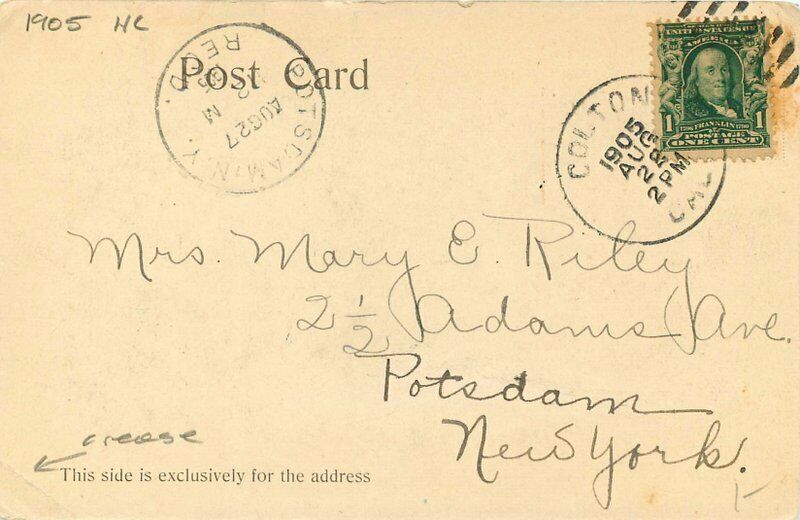 1905 NC
Post Card
POTSDAM, N.Y.
AUG 27
2 M
REC'D.
COLTON
1905
AUG
2 PM
CAL
UNITED STATES OF
1 FRANKLIN 1
POSTAGE
ONE CENT
Mrs. Mary E. Riley
2 1/2 Adams Ave.
Potsdam
New York.
crease
This side is exclusively for the address